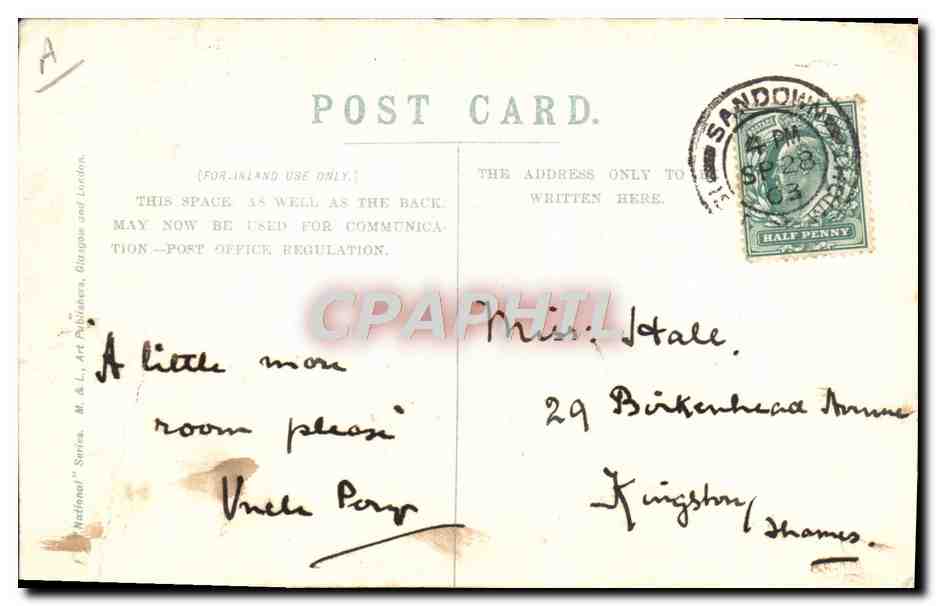 A
POST CARD.
(FOR INLAND USE ONLY.)
THIS SPACE AS WELL AS THE BACK
MAY NOW BE USED FOR COMMUNICA-
TION—POST OFFICE REGULATION.
THE ADDRESS ONLY TO
WRITTEN HERE.
SANDOWN
4 PM
SP 28
03
HALF PENNY
National" Series. M. & L., Art Publishers, Glasgow and London.
CPAPHIL
"A little more
room please"
Uncle
Miss. Hall.
29 Birkenhead Avenue
Kingston,
Thames.